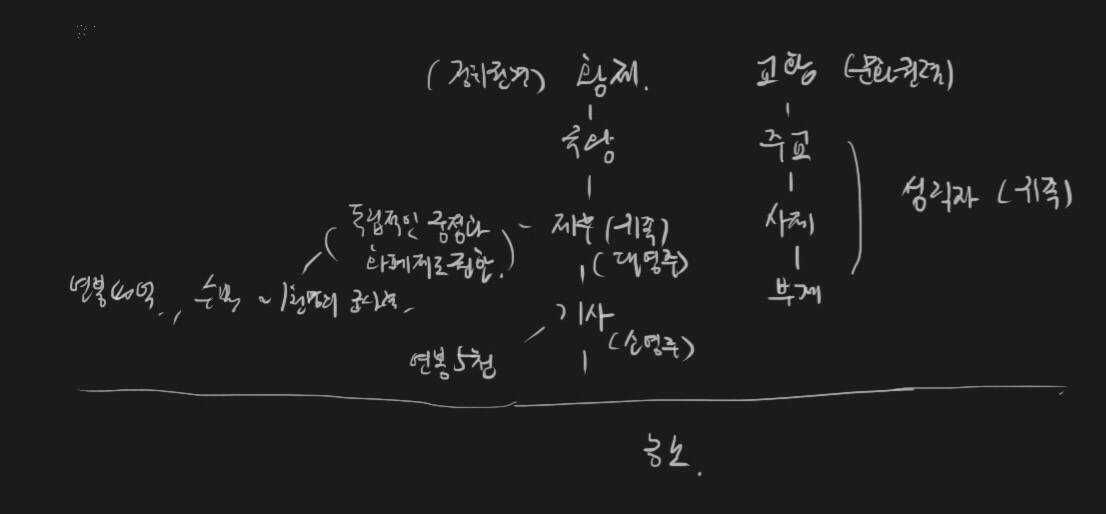 (정치권력) 황제. 교황 (문화권력)
국왕 주교
성직자 (귀족)
독립적인 궁정과 - 제후 (귀족) 사제
화폐제조권한. (대영주)
연봉 40억., 수백 ~ 1천명의 군사력. 부제
기사
연봉 5천 (소영주)
농노.